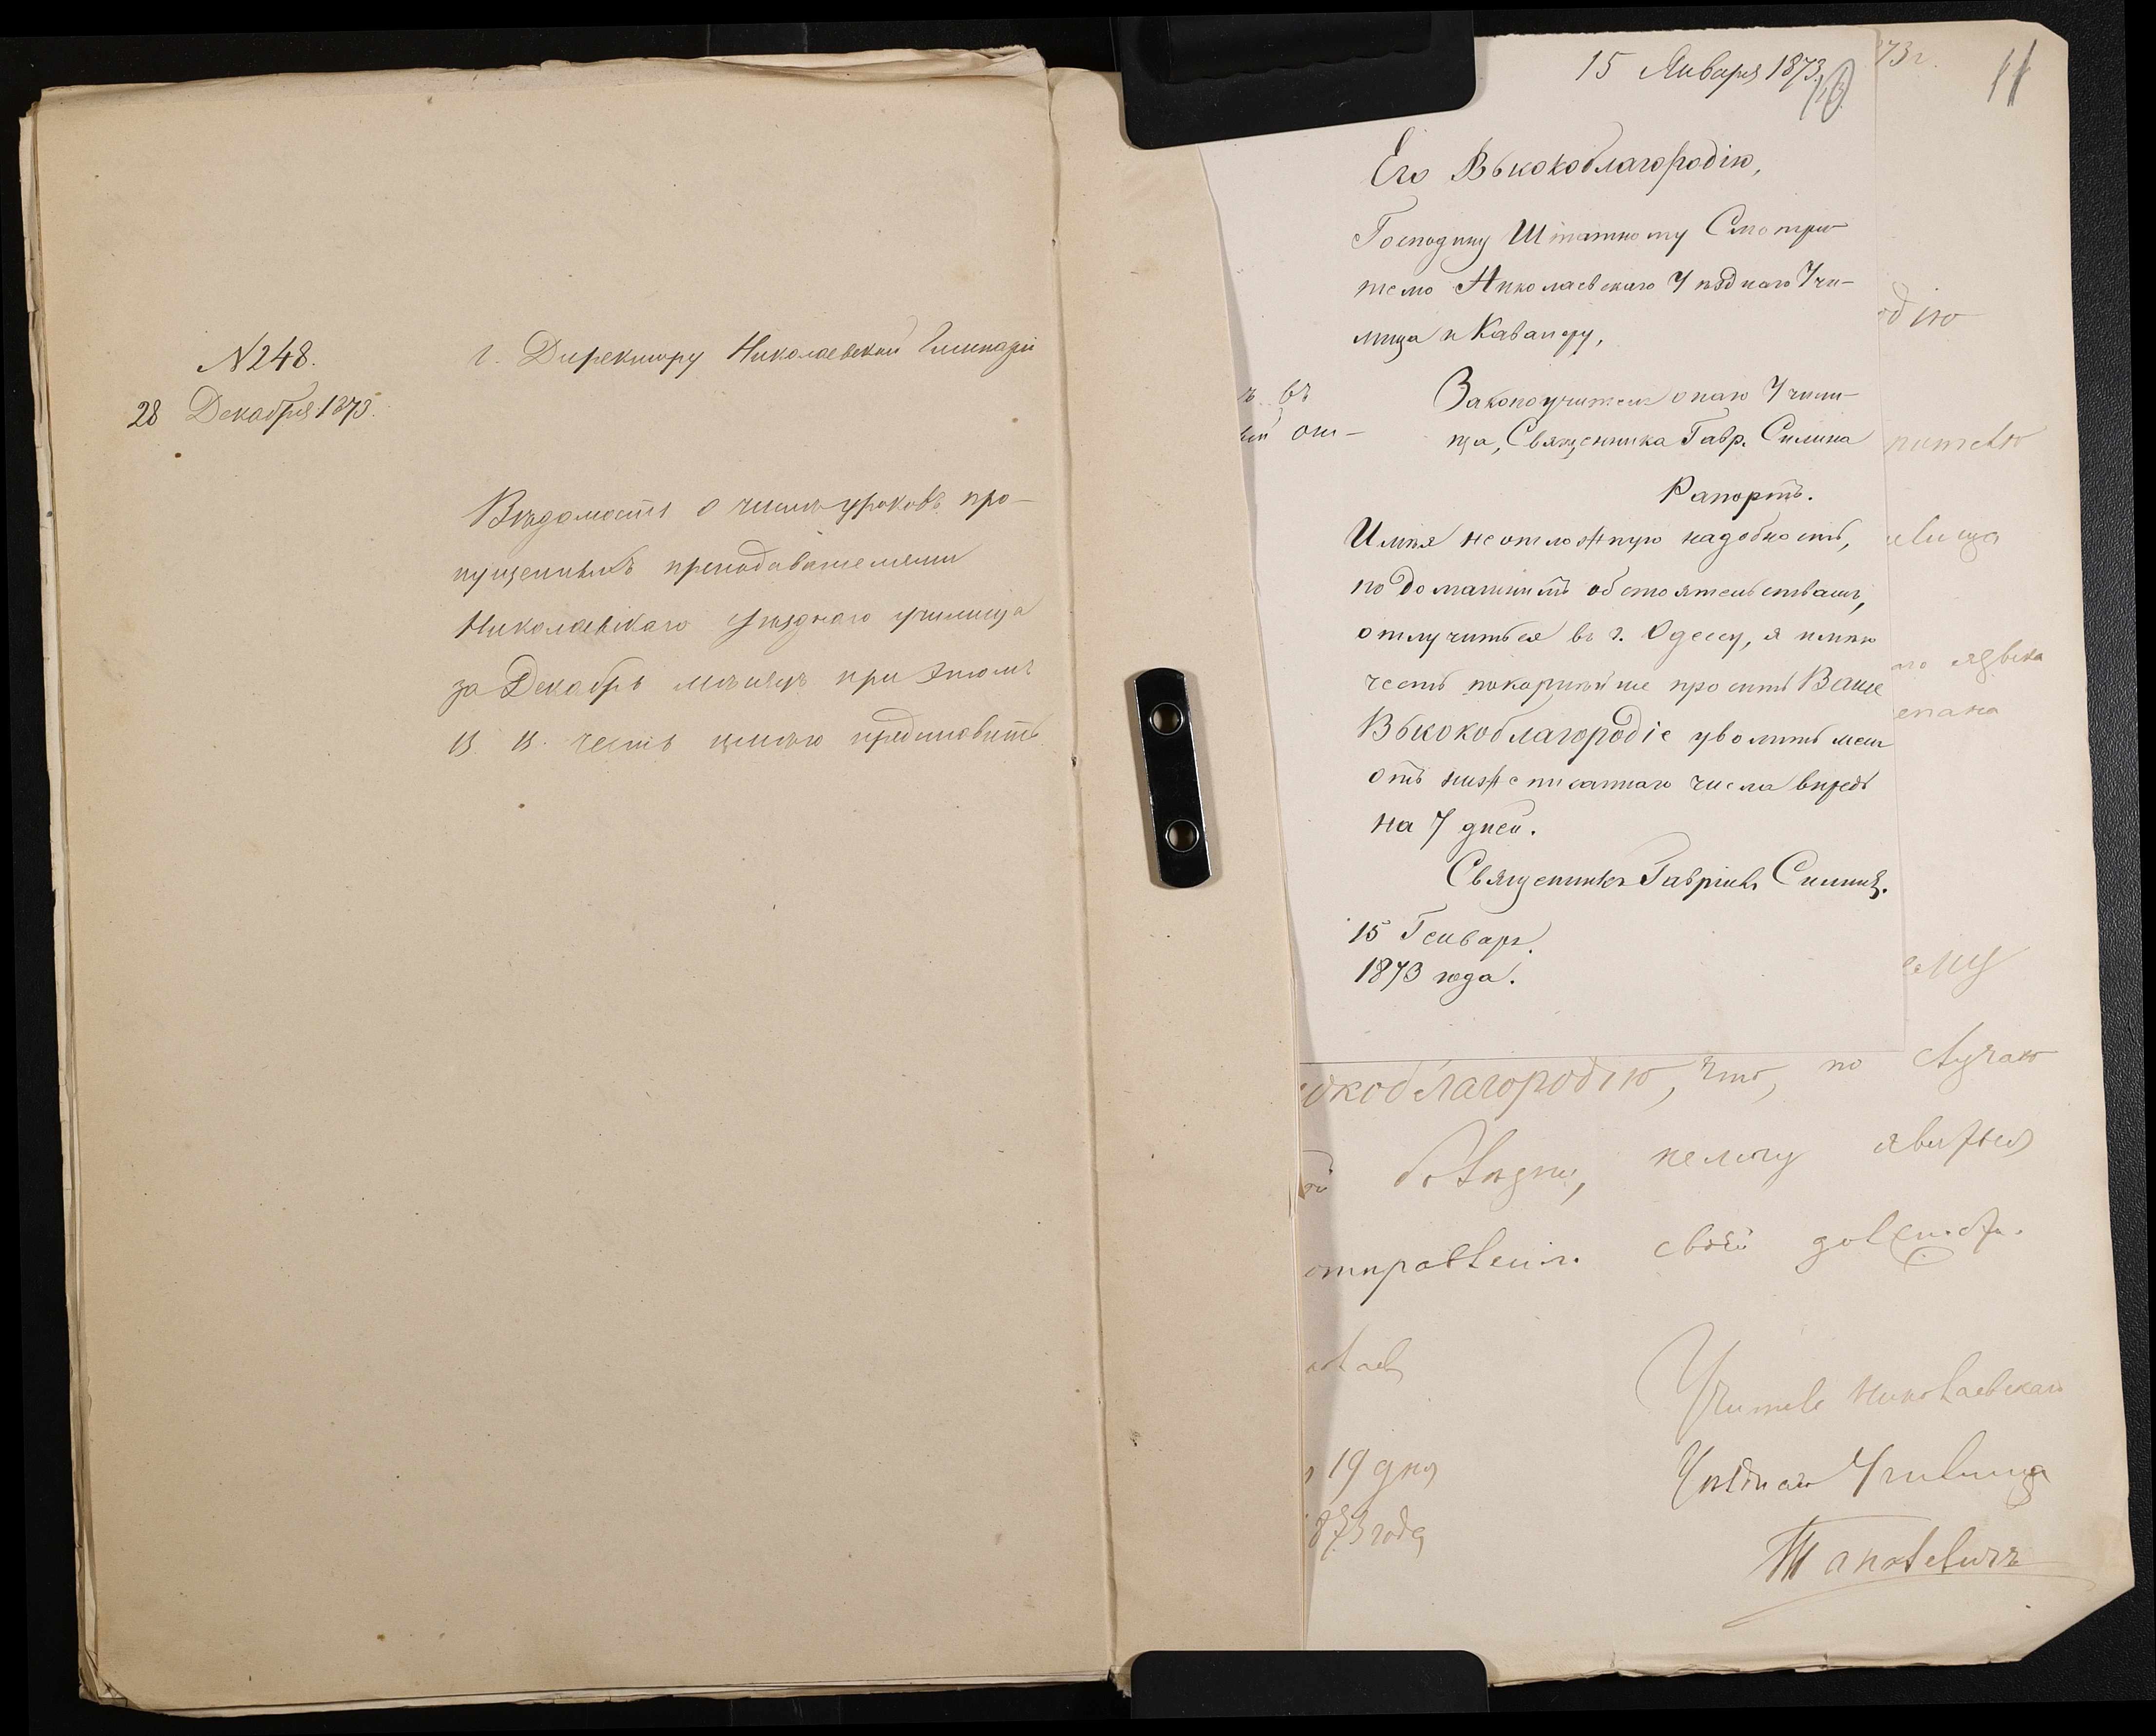 N 248.
28 Декабря 1873.
г. Директору Николаевской Гимназіи
Вѣдомость о числѣ уроковъ про-
пущенныхъ преподавателями
Николаевскаго уѣзднаго училища
за Декабрь мѣсяцъ при этомъ
В. В. честь имѣю представить
15 Января 1873
11
Его Высокоблагородію,
Господину Штатному Смотри-
телю Николаевскаго Уѣзднаго Учи-
лища и Кавалеру,
Законоучителя онаго Учили-
ща, Священника Гавр. Силина
Рапортъ.
Имѣя неотложную надобность,
по домашнимъ обстоятельствамъ,
отлучиться въ г. Одессу, я имѣю
честь покорнѣйше просить Ваше
Высокоблагородіе уволить меня
отъ нижеписаннаго числа впредь
на 7 дней.
Священникъ Гавріилъ Силинъ.
15 Генваря
1873 года.
73 г.
одію
рителю
илища
языка
ему
окоблагородію, что, по случаю
болѣзни, немогу явиться
отправленія своей должности.
Учитель Николаевскаго
Уѣзднаго Училища
19 дня
873 года